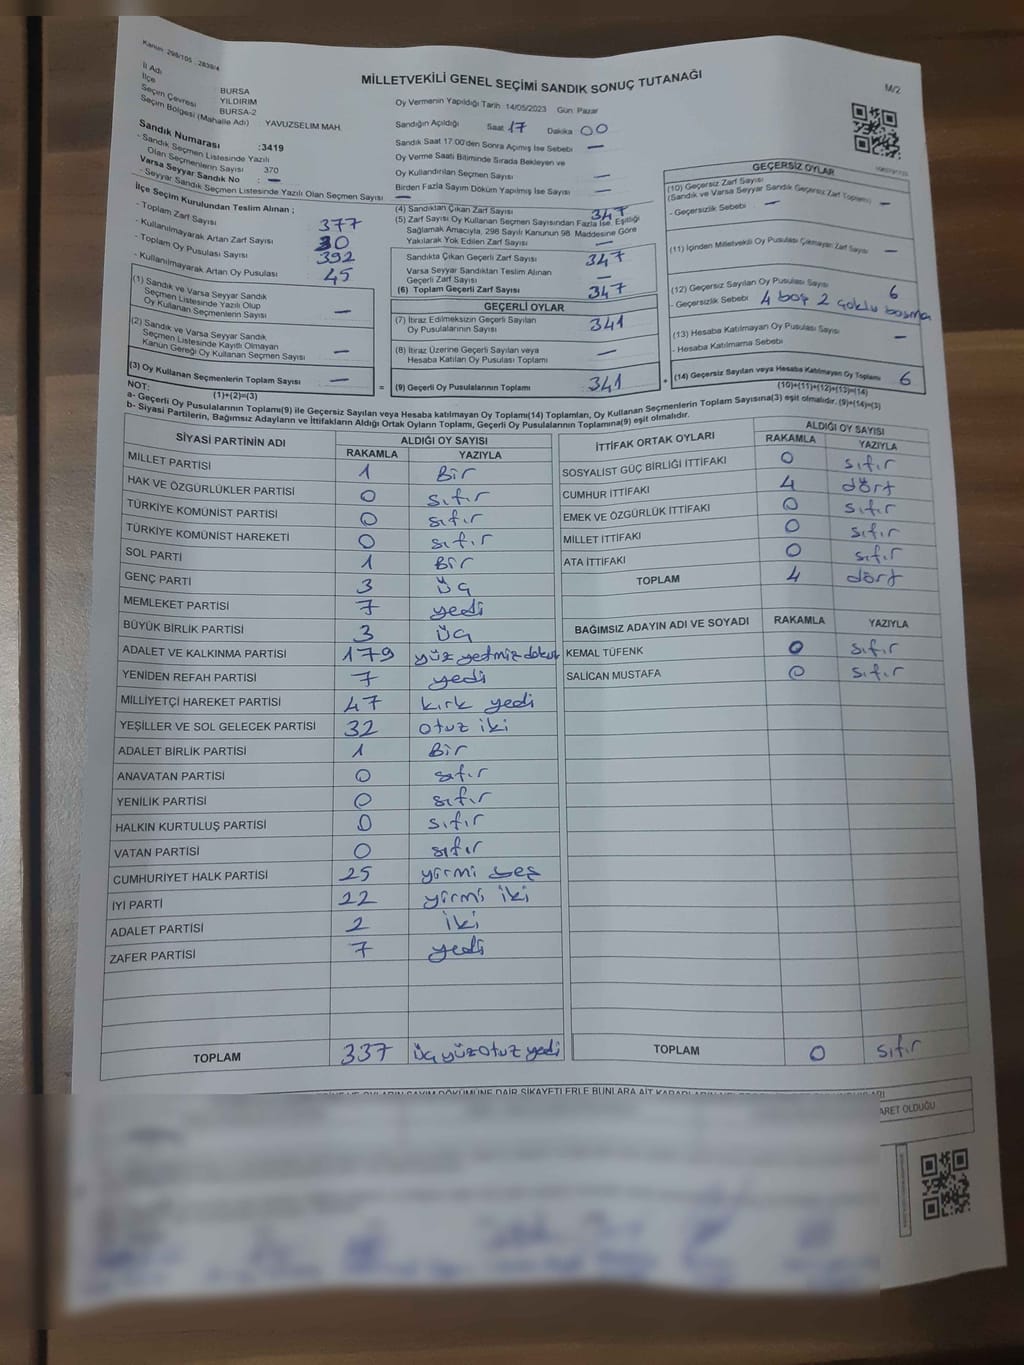 Kanun : 298/105 : 2839/4
MİLLETVEKİLİ GENEL SEÇİMİ SANDIK SONUÇ TUTANAĞI
M/2
İl Adı BURSA
İlçe YILDIRIM
Seçim Çevresi BURSA-2
Seçim Bölgesi (Mahalle Adı) YAVUZSELIM MAH.
Sandık Numarası :3419
- Sandık Seçmen Listesinde Yazılı
Olan Seçmenlerin Sayısı 370
Varsa Seyyar Sandık No : —
- Seyyar Sandık Seçmen Listesinde Yazılı Olan Seçmen Sayısı —
İlçe Seçim Kurulundan Teslim Alınan ;
- Toplam Zarf Sayısı 377
- Kullanılmayarak Artan Zarf Sayısı 30
- Toplam Oy Pusulası Sayısı 392
- Kullanılmayarak Artan Oy Pusulası 45
(1) Sandık ve Varsa Seyyar Sandık
Seçmen Listesinde Yazılı Olup
Oy Kullanan Seçmenlerin Sayısı —
(2) Sandık ve Varsa Seyyar Sandık
Seçmen Listesinde Kayıtlı Olmayan
Kanun Gereği Oy Kullanan Seçmen Sayısı —
(3) Oy Kullanan Seçmenlerin Toplam Sayısı —
(1)+(2)=(3)
Oy Vermenin Yapıldığı Tarih :14/05/2023 Gün: Pazar
Sandığın Açıldığı Saat 17 Dakika 00
Sandık Saat 17:00'den Sonra Açılmış İse Sebebi —
Oy Verme Saati Bitiminde Sırada Bekleyen ve
Oy Kullandırılan Seçmen Sayısı —
Birden Fazla Sayım Döküm Yapılmış İse Sayısı —
(4) Sandıktan Çıkan Zarf Sayısı 347
(5) Zarf Sayısı Oy Kullanan Seçmen Sayısından Fazla İse, Eşitliği
Sağlamak Amacıyla, 298 Sayılı Kanunun 98. Maddesine Göre
Yakılarak Yok Edilen Zarf Sayısı —
Sandıkta Çıkan Geçerli Zarf Sayısı 347
Varsa Seyyar Sandıktan Teslim Alınan
Geçerli Zarf Sayısı —
(6) Toplam Geçerli Zarf Sayısı 347
GEÇERLİ OYLAR
(7) İtiraz Edilmeksizin Geçerli Sayılan
Oy Pusulalarının Sayısı 341
(8) İtiraz Üzerine Geçerli Sayılan veya
Hesaba Katılan Oy Pusulası Toplamı —
= (9) Geçerli Oy Pusulalarının Toplamı 341 +
GEÇERSİZ OYLAR
(10) Geçersiz Zarf Sayısı
(Sandık ve Varsa Seyyar Sandık Geçersiz Zarf Toplamı) —
- Geçersizlik Sebebi —
(11) İçinden Milletvekili Oy Pusulası Çıkmayan Zarf Sayısı —
(12) Geçersiz Sayılan Oy Pusulası Sayısı 6
- Geçersizlik Sebebi 4 boş 2 çoklu basma
(13) Hesaba Katılmayan Oy Pusulası Sayısı —
- Hesaba Katılmama Sebebi
(14) Geçersiz Sayılan veya Hesaba Katılmayan Oy Toplamı 6
(10)+(11)+(12)+(13)=(14)
NOT:
a- Geçerli Oy Pusulalarının Toplamı(9) ile Geçersiz Sayılan veya Hesaba katılmayan Oy Toplamı(14) Toplamları, Oy Kullanan Seçmenlerin Toplam Sayısına(3) eşit olmalıdır. (9)+(14)=(3)
b- Siyasi Partilerin, Bağımsız Adayların ve İttifakların Aldığı Ortak Oyların Toplamı, Geçerli Oy Pusulalarının Toplamına(9) eşit olmalıdır.
SİYASİ PARTİNİN ADI ALDIĞI OY SAYISI
RAKAMLA YAZIYLA
MİLLET PARTİSİ 1 Bir
HAK VE ÖZGÜRLÜKLER PARTİSİ 0 sıfır
TÜRKİYE KOMÜNİST PARTİSİ 0 sıfır
TÜRKİYE KOMÜNİST HAREKETİ 0 sıfır
SOL PARTİ 1 Bir
GENÇ PARTİ 3 Üç
MEMLEKET PARTİSİ 7 yedi
BÜYÜK BİRLİK PARTİSİ 3 Üç
ADALET VE KALKINMA PARTİSİ 179 yüz yetmiz dokuz
YENİDEN REFAH PARTİSİ 7 yedi
MİLLİYETÇİ HAREKET PARTİSİ 47 kırk yedi
YEŞİLLER VE SOL GELECEK PARTİSİ 32 otuz iki
ADALET BİRLİK PARTİSİ 1 Bir
ANAVATAN PARTİSİ 0 sıfır
YENİLİK PARTİSİ 0 sıfır
HALKIN KURTULUŞ PARTİSİ 0 sıfır
VATAN PARTİSİ 0 sıfır
CUMHURİYET HALK PARTİSİ 25 yirmi beş
İYİ PARTİ 22 yirmi iki
ADALET PARTİSİ 2 iki
ZAFER PARTİSİ 7 yedi
TOPLAM 337 üç yüz otuz yedi
İTTİFAK ORTAK OYLARI ALDIĞI OY SAYISI
RAKAMLA YAZIYLA
SOSYALIST GÜÇ BİRLİĞİ İTTİFAKI 0 sıfır
CUMHUR İTTİFAKI 4 dört
EMEK VE ÖZGÜRLÜK İTTİFAKI 0 sıfır
MİLLET İTTİFAKI 0 sıfır
ATA İTTİFAKI 0 sıfır
TOPLAM 4 dört
BAĞIMSIZ ADAYIN ADI VE SOYADI RAKAMLA YAZIYLA
KEMAL TÜFENK 0 sıfır
SALİCAN MUSTAFA 0 sıfır
TOPLAM 0 sıfır
OYLARIN SAYIM DÖKÜMÜNE DAİR ŞİKAYETLERLE BUNLARA AİT
ARET OLDUĞU